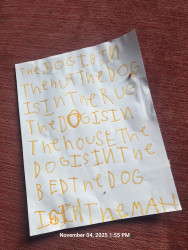 The DOG IS IN
The hUT The DOG
IS IN The RUG
The DOG IS IN
The hOUSE The
DOG IS IN The
BED The DOG
IS IN The MAN
November 04, 2025 1:55 PM